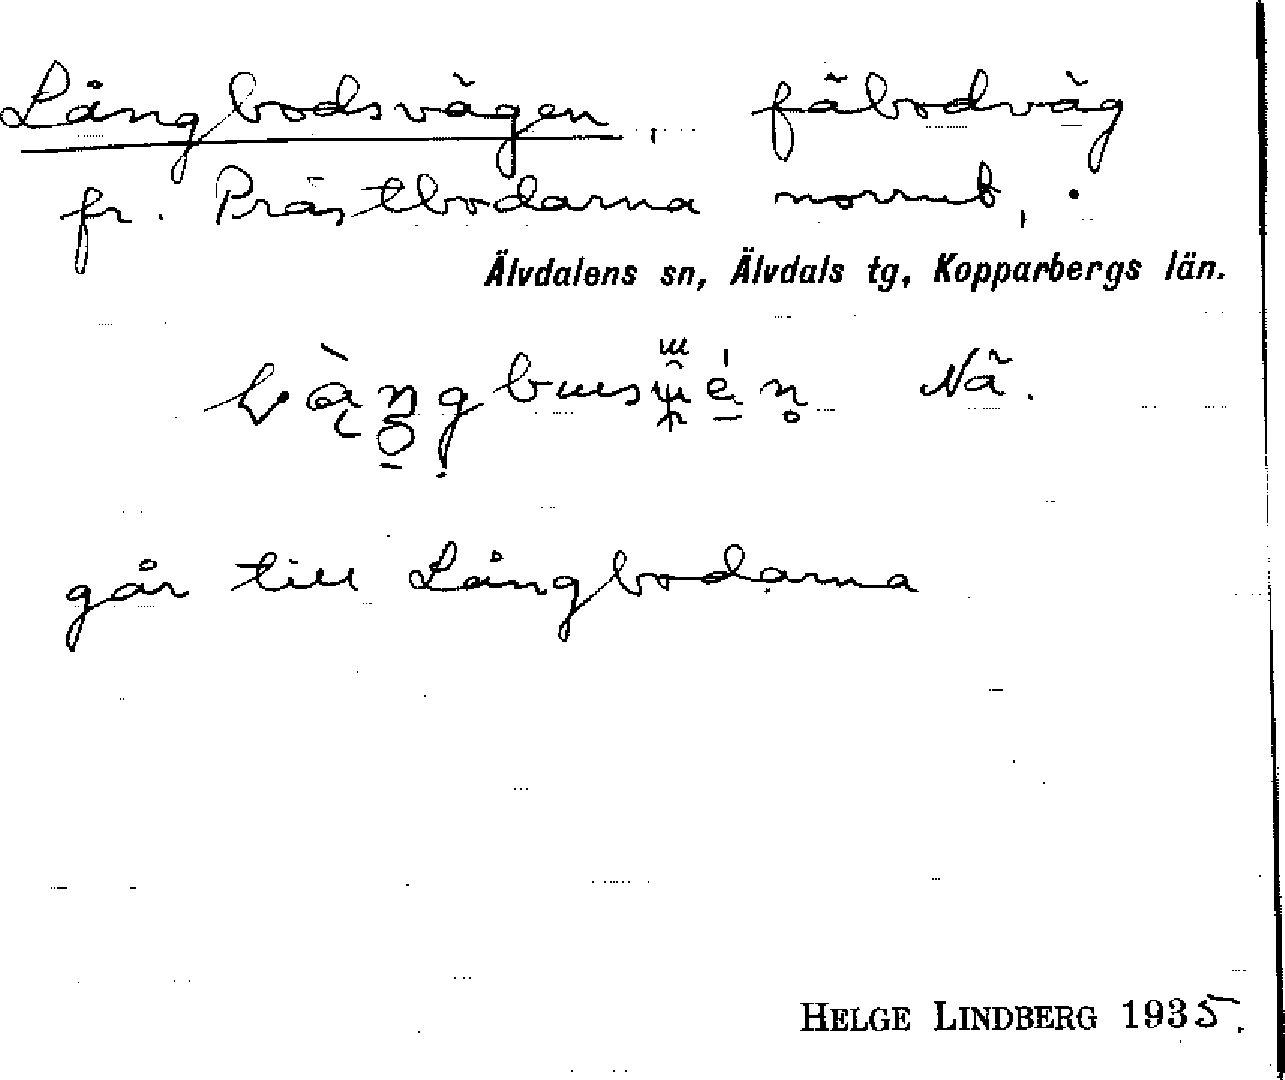 Långbodsvägen, fäbodväg
fr. Prästbodarna norrut, .
Älvdalens sn, Älvdals tg, Kopparbergs län.
Nä.
går till Långbodarna
HELGE LINDBERG 1935.